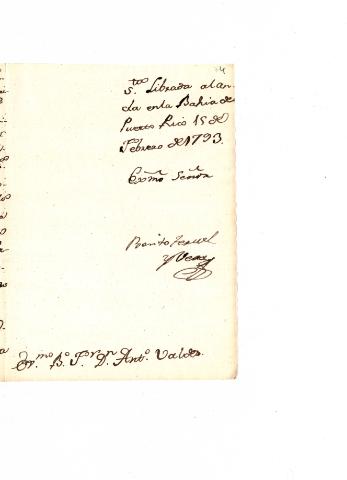 S.ta Librada al an-
cla en la Bahia de
Puerto Rico 15 de
Febrero de 1793.
Exmo Señor
Benito
y Vera
Exmo. B.o F.r D. Ant.o Valdes.